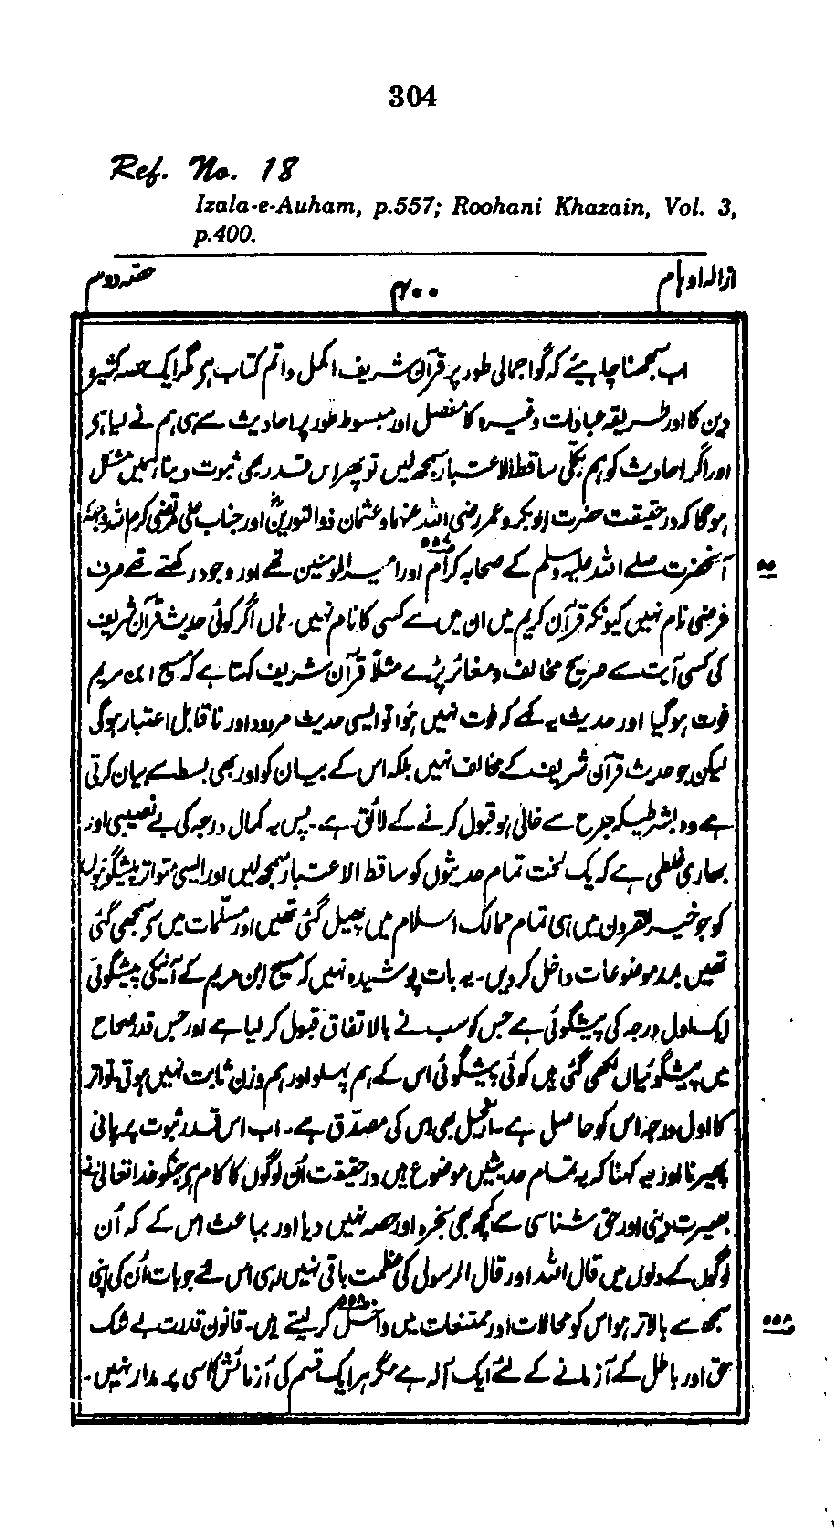 304
Ref. No. 18
Izala-e-Auham, p.557; Roohani Khazain, Vol. 3,
p.400.
ازالہ اوہام
۴۰۰
حصہ دوم
اب سمجھنا چاہیئے کہ گو اجمالی طور پر قرآن شریف اکمل و اتم کتاب ہے مگر ایک حصہ کثیرہ
دین کا اور طریقہ عبادات وغیرہ کا مفصل اور مبسوط طور پر احادیث سے ہی ہم نے لیا ہے
اور اگر احادیث کو ہم بکلی ساقط الاعتبار سمجھ لیں تو پھر اس قدر بھی ثبوت دینا ہمیں مشکل
ہوگا کہ درحقیقت حضرت ابو بکر و عمر رضی اللہ عنہما و عثمان ذوالنورین اور جناب علی مرتضی کرم اللہ وجہہ
آنحضرت صلے اللہ علیہ وسلم کے صحابہ کرام ۵۵۸ اور امیر المومنین تھے اور وجود رکھتے تھے صرف
فرضی نام نہیں کیونکہ قرآن کریم میں ان میں سے کسی کا نام نہیں۔ ہاں اگر کوئی حدیث قرآن شریف
کی کسی آیت سے صریح مخالف و مغائر پڑے مثلاً قرآن شریف کہتا ہے کہ مسیح ابن مریم
فوت ہوگیا اور حدیث یہ کہے کہ فوت نہیں ہوا تو ایسی حدیث مردود اور ناقابل اعتبار ہوگی
لیکن جو حدیث قرآن شریف کے مخالف نہیں بلکہ اس کے بیان کو اور بھی بسط سے بیان کرتی
ہے وہ بشرطیکہ جرح سے خالی ہو قبول کرنے کے لائق ہے۔ پس یہ کمال درجہ کی بے نصیبی اور
بھاری غلطی ہے کہ یک لخت تمام حدیثوں کو ساقط الاعتبار سمجھ لیں اور ایسی متواتر پیشگوئیوں
کو جو خیر القرون میں ہی تمام ممالک اسلام میں پھیل گئی تھیں اور مسلمات میں سے سمجھی گئی
تھیں بمد موضوعات داخل کر دیں۔ یہ بات پوشیدہ نہیں کہ مسیح ابن مریم کے آنے کی پیشگوئی
ایک اول درجہ کی پیشگوئی ہے جس کو سب نے بالاتفاق قبول کر لیا ہے اور جس قدر صحاح
میں پیشگوئیاں لکھی گئی ہیں کوئی پیشگوئی اس کے ہم پہلو اور ہم وزن ثابت نہیں ہوتی۔ تواتر
کا اول درجہ اس کو حاصل ہے۔ انجیل بھی اس کی مصدق ہے۔ اب اس قدر ثبوت پر پانی
پھیرنا اور یہ کہنا کہ یہ تمام حدیثیں موضوع ہیں درحقیقت ان لوگوں کا کام ہے جن کو خدا تعالیٰ نے
بصیرت دینی اور حق شناسی سے کچھ بھی بخرہ اور حصہ نہیں دیا اور بباعث اس کے کہ ان
لوگوں کے دلوں میں قال اللہ اور قال الرسول کی عظمت باقی نہیں رہی اس لئے جو بات ان کی اپنی
سمجھ سے بالاتر ہو اس کو محالات اور ممتنعات میں داخل ۵۵۸ کر لیتے ہیں۔ قانون قدرت بے شک
حق اور باطل کے آزمانے کے لئے ایک آلہ ہے مگر ہر ایک قسم کی آزمائش کا اسی پر مدار نہیں۔